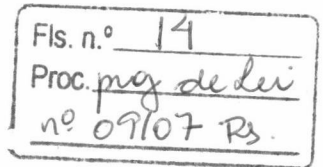 Fls. n.º 14
Proc. proj de Lei
nº 09/07 Rs.